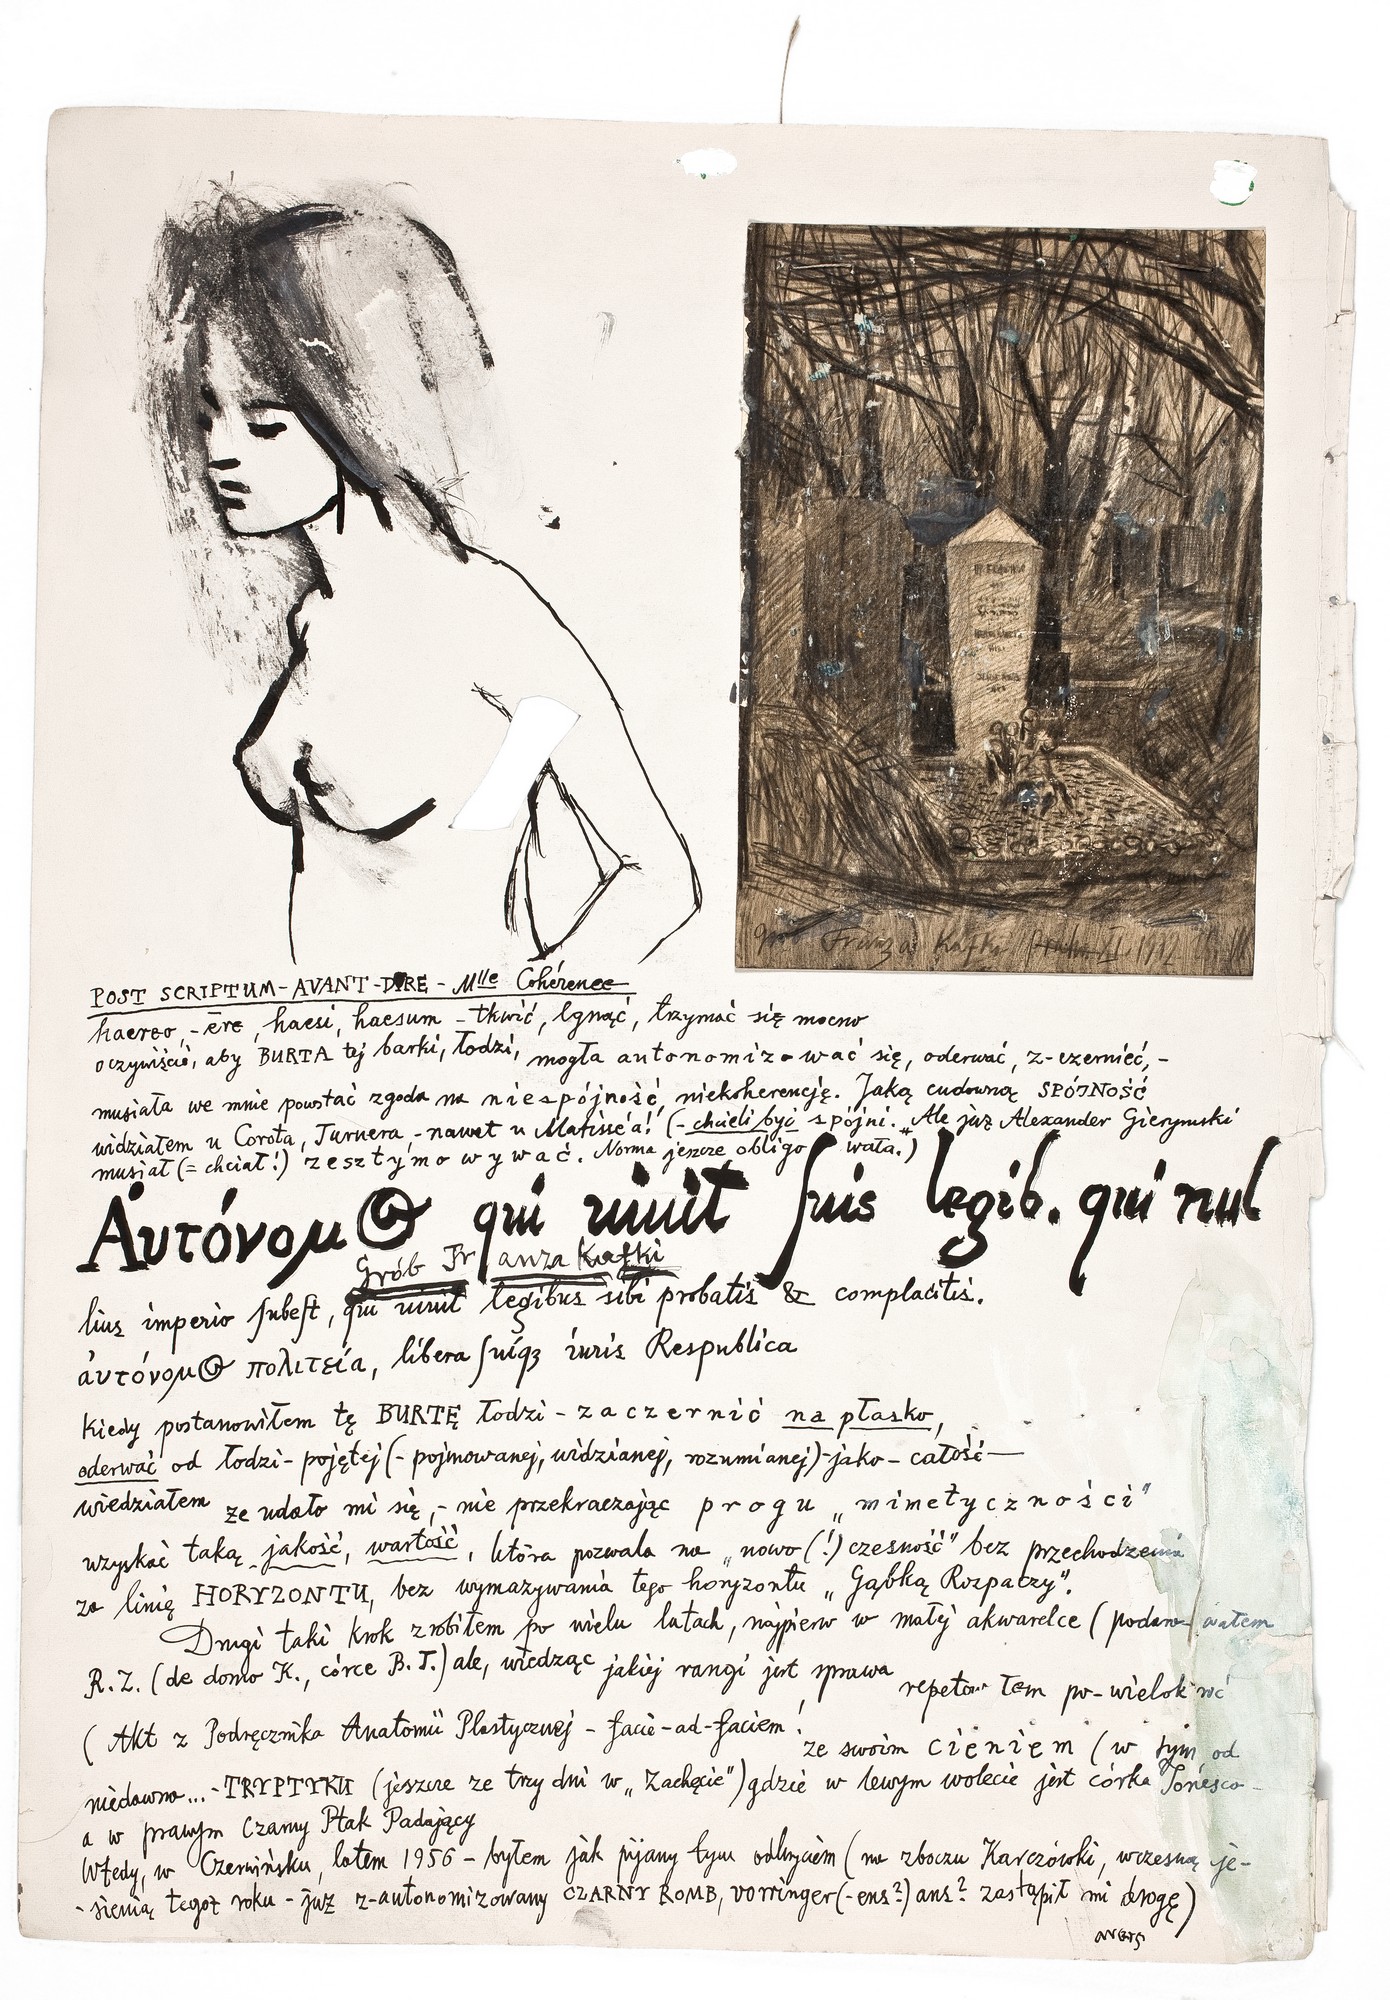 grób Franza Kafki 1992
POST SCRIPTUM-AVANT-DIRE - Mlle Cohérence
haereo, -ēre, haesi, haesum - tkwić, lgnąć, trzymać się mocno
oczywiście, aby BURTA tej barki, łodzi, mogła autonomizować się, oderwać, z-czernieć, -
musiała we mnie powstać zgoda na niespójność, niekoherencję. Jaką cudowną SPÓJNOŚĆ
widziałem u Corota, Turnera, - nawet u Matisse'a! (- chcieli być spójni. „Ale już Alexander Gierymski
musiał (= chciał!) zesztymowywać. Norma jeszcze obligo wała.)
Ἀυτόνομ@ qui uiuit suis legib. qui nul
Grób Fr anza Kafki
lius imperio subest, qui uiuit legibus sibi probatis & complacitis.
ἀυτόνομ@ πολιτεία, libera suiqз iuris Respublica
Kiedy postanowiłem tę BURTĘ łodzi - zaczernić na płasko,
oderwać od łodzi - pojętej (- pojmowanej, widzianej, rozumianej) - jako - całość —
wiedziałem ze udało mi się, - nie przekraczając progu „mimetyczności"
uzyskać taką jakość, wartość, która pozwala na „nowo(!)czesność" bez przechodzenia
za linię HORYZONTU, bez wymazywania tego horyzontu „Gąbką Rozpaczy".
Drugi taki krok zrobiłem po wielu latach, najpierw w małej akwarelce (podaro wałem
R.Z. (de domo K., córce B.T.) ale, wiedząc jakiej rangi jest sprawa repeto łem po-wielok roć
(Akt z Podręcznika Anatomii Plastycznej - facie-ad-faciem! ze swoim cieniem (w tym od
niedawna... - TRYPTYKU (jeszcze ze trzy dni w „Zachęcie") gdzie w lewym wolecie jest córka Ionesco -
a w prawym Czarny Ptak Padający
Wtedy, w Czerwińsku, latem 1956 - byłem jak pijany tym odkryciem (na zboczu Karczówki, wczesną je-
- sienią tegoż roku - już z-autonomizowany CZARNY ROMB, vorringer(-ens?) ans? zastąpił mi drogę)
avers